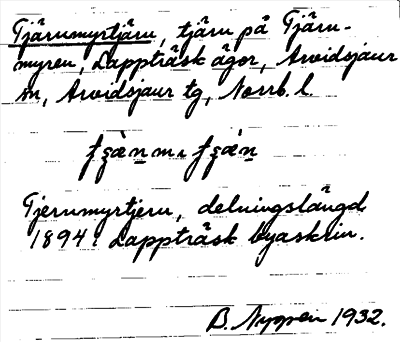 Tjärnmyrtjärn, tjärn på Tjärn-
myren, Lappträsk ägor, Arvidsjaur
sn, Arvidsjaur tg, Norrb. l.
Tjernmyrtjern, delningslängd
1894: Lappträsk byaskrin.
B. Nygren 1932.